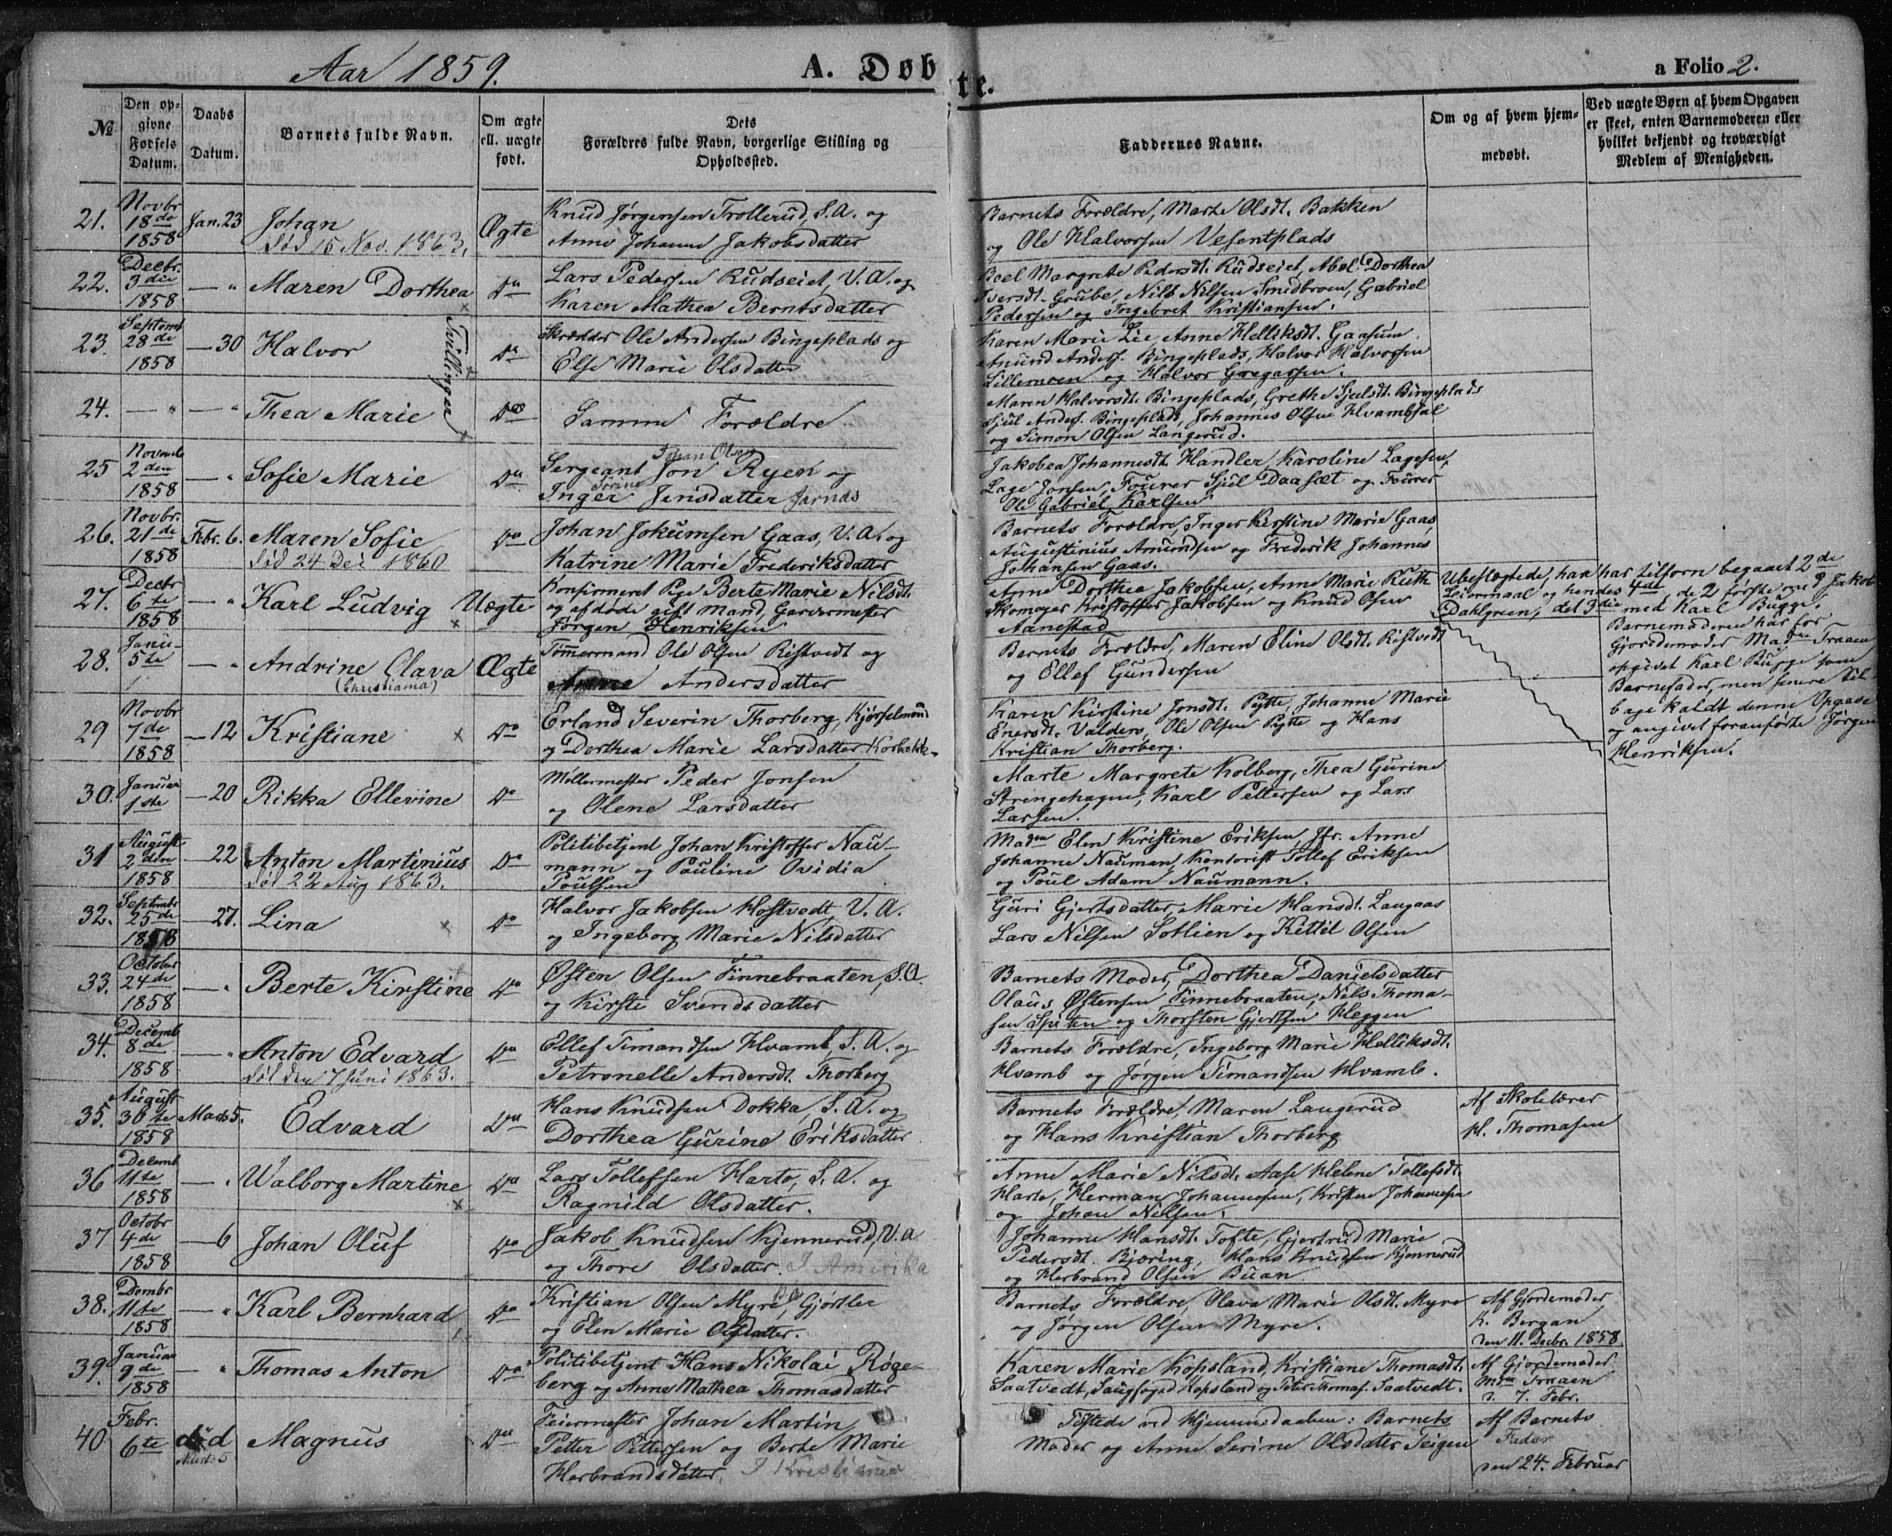 Aar 1859.
A. Døbte.
a Folio 2.
№
Den opgivne Fødsels Datum.
Daabs Datum.
Barnets fulde Navn.
Om ægte ell. uægte født.
Dets Forældres fulde Navn, borgerlige Stilling og Opholdssted.
Faddernes Navne.
Om og af hvem hjemmedøbt.
Ved uægte Børn af hvem Opgaven er skeet, enten Barnemoderen eller hvilket bekjendt og troværdigt Medlem af Menigheden.
21.
Novbr
18de
1858
Jan. 23
Johan
død 15 Nov. 1863.
Ægte
Knud Jørgensen Trollerud, S.A. og
Anne Johanne Jakobsdatter
Barnets Forældre, Marte Olsdt. Bakken
og Ole Halvorsen Vesentplads
22.
Decbr.
3die
1858
— "
Maren Dorthea
Do
Lars Pedersen Rudseiet, V.A. og
Karen Mathea Berntsdatter
Boel Margrete Pedersdt. Rudseiet, Abel Dorthea
Iversdt. Grube, Nils Nilsen Smedbroen, Gabriel
Pedersen og Ingebret Kristiansen.
23.
Septemb
28de
1858
— 30
Halvor
Tvillinger
Do
Skrædder Ole Andersen Bingeplads og
Else Marie Olsdatter
Karen Marie Lie, Anne Helliksdt. Gaasum
Amund Anders. Bingeplads, Halvor Halvorsen
Lillemoen og Halvor Gregersen.
24.
— "
— "
Thea Marie
Do
Samme Forældre
Maren Halvorsdt. Bingeplads, Grethe Sjulsdt. Bingeplads
Sjul Anders. Bingeplads, Johannes Olsen Hvambsal
og Simon Olsen Langerud.
25
Novemb
2den
1858
— "
Sofie Marie
Do
Johan Olsen
Sergeant Jon Ryen og
Sørine
Inger Jensdatter Jarnæs
Jakobea Johannesdt. Handler, Karoline Lagesen,
Lage Jonsen, Fourer Sjul Daasæt og Fourer
Ole Gabriel Karlsen
26.
Novbr.
21de
1858
Febr. 6.
Maren Sofie
død 24 Dec 1860
Do
Johan Jokumsen Gaas, V.A. og
Katrine Marie Frederiksdatter
Barnets Forældre, Inger Kirstine Marie Gaas,
Augustinius Amundsen og Frederik Johannes
Johansen Gaas.
27.
Decbr
6te
1858
— "
Karl Ludvig
Uægte
Konfirmeret Pige Berte Marie Nilsdt.
og afdøde gift Mand, Garvermester
Jørgen Henriksen
Anne Dorthea Jakobsen, Anne Marie Ruth
Skomager Kristoffer Jakobsen og Knud Olsen
Aanestad
Ubeslægtede, han har tilforn begaaet 2de
Leiermaal og hendes 4de, de 2 første med Jakob
Dahlgreen, det 3die med Karl Bugge.
Barnemoderen har for
Gjordemoder Madm Traaen
opgivet Karl Bugge som
Barnefader, men senere til-
bage kaldt denne Opgave
og angivet foranførte Jørgen
Henriksen.
28.
Janu-
5te
— "
Andrine Olava
(Christiania)
Ægte
Tømmermand Ole Olsen Ristvedt og
Anne Andersdatter
Barnets Forældre, Maren Eline Olsdt. Ristvedt
og Ellef Gundersen
29
Novbr
7de
1858
— 12
Kristiane
Do
Erland Severin Thorberg, Kjørselmand
og Dorthea Marie Larsdatter
Karen Kirstine Jonsdt. Pytte, Johanne Marie
Enersdt. Valders, Ole Olsen Pytte og Hans
Kristian Thorberg.
30.
Januar
1ste
— 20
Rikka Ellevine
Do
Møllermester Peder Jonsen
og Olene Larsdatter
Marte Margrete Kolberg, Thea Gurine
Strengehagen, Karl Pettersen og Lars
Larsen.
31
August
2den
1858
— 22
Anton Martinius
død 22 Aug 1863.
Do
Politibetjent Johan Kristoffer Nau-
mann og Pauline Ovidia
Poulsen
Madm Elen Kristine Eriksen, Jfr. Anne
Johanne Nauman, Kontorist Tollef Eriksen
og Poul Adam Naumann.
32.
Septembr
25de
1858
— 27.
Lina
Do
Halvor Jakobsen Hostvedt, V.A.
og Ingeborg Marie Nilsdatter
Guri Gjertsdatter, Marie Hansdt. Langaas
Lars Nilsen Sotlien og Kittil Olsen
33.
October
24de
1858
— "
Berte Kirstine
Do
Østen Olsen Finnebraaten, S.A.
og Kirsti Svendsdatter
Barnets Moder, Dorthea Danielsdatter
Olaus Østensen Finnebraaten, Nils Thoma-
sen Spiten og Thorsten Gjertsen Heggen
34.
Decemb
8de
1858
— "
Anton Edvard
død den 7 Juni 1863.
Do
Ellef Simandsen Hvamb, S.A. og
Petronelle Andersdt. Thorberg
Barnets Forældre, Ingeborg Marie Helliksdt.
Hvamb og Jørgen Simandsen Hvamb.
35.
August
30te
1858
Marts 5.
Edvard
Do
Hans Knudsen Dokka, S.A. og
Dorthea Gurine Eriksdatter
Barnets Forældre, Maren Langerud
og Hans Kristian Thorberg
Af Skolelærer
H. Thomasen
36
Decemb
11te
1858
— "
Walborg Martine
Do
Lars Tollefsen Harto, S.A. og
Ragnild Olsdatter.
Anne Marie Nilsdt. Aase Helene Tollefsdt.
Harto, Herman Johannesen, Kristen Johannesen
og Johan Nilsen.
37
Octobr
4de
1858
— 6
Johan Oluf
Do
Jakob Knudsen Kjennerud, V.A
og Thore Olsdatter. I Amerika
Johanne Hansdt. Tofte, Gjertrud Marie
Pedersdt. Bjøring, Hans Knudsen Kjennerud
og Herbrand Olsen Buan
38.
Dembr
11te
1858
— "
Karl Bernhard
Do
Kristian Olsen Myre, Gjørtler
og Elen Marie Olsdatter.
Barnets Forældre, Olava Marie Olsdt. Myre
og Jørgen Olsen Myre.
Af Gjordemoder
K. Bergan
den 11. Decbr. 1858.
39.
Januar
9de
1858
"
Thomas Anton
Do
Politibetjent Hans Nikolai Røge-
berg og Anne Mathea Thomasdatter
Karen Marie Kopsland, Kristiane Thomasdt.
Saatvedt, Saugfoged Kopsland og Peter Thomas. Saatvedt.
Af Gjordemoder
Mdm Traaen
d. 7. Febr.
40
Febr.
6te
død
Marts 5
Magnus
Do
Feiermester Johan Martin
Petter Pettersen og Berte Marie
Herbrandsdatter. I Kristiania
Tilstede ved Hjemmedaaben: Barnets
Moder og Anne Serine Olsdatter Teigen
Af Barnets
Fader
den 24. Februar